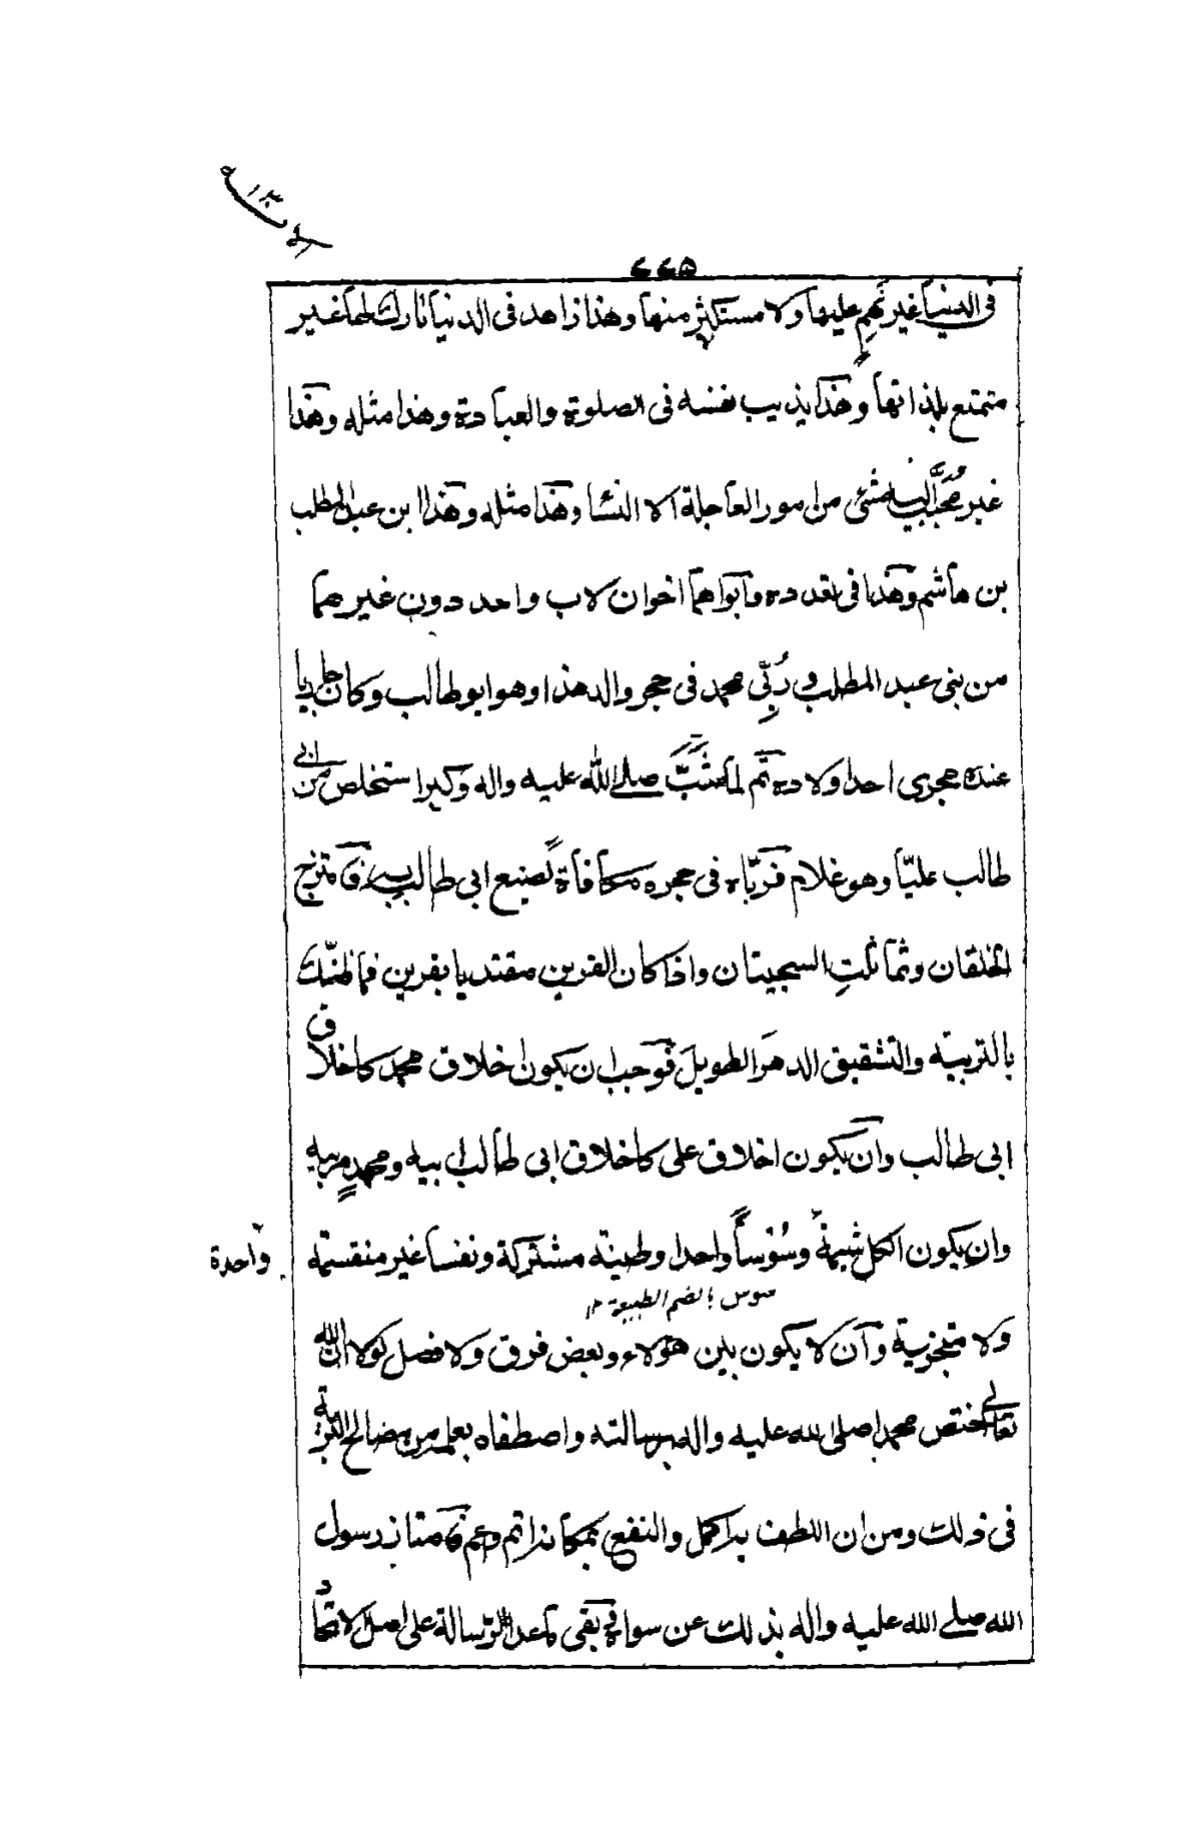 ٦٦٥
فى الدنيا غير نَهِمٍ عليها ولا مستكثر منها وهذا زاهد فى الدنيا تارك لها غير
متمتع بلذاتها وهذا يذيب نفسه فى الصلوة والعبادة وهذا مثله وهذا
غير مُحَبَّب اليه شئ من امور العاجلة الا النسا وهذا مثله وهذا ابن عبد المطلب
بن هاشم وهذا فى تعدده وابواهما اخوان لاب واحد دون غيرهما
من بنى عبد المطلب و رُبِّى محمد فى حجر والد هذا وهو ابو طالب وكان جاريا
عنده مجرى احد اولاده ثم لما شَبَّ صلى الله عليه واله وكبر استخلص من ابى
طالب عليّا وهو غلام فربّاه فى حجره مكافأة لصنيع ابى طالب به فامتزج
الخلقان وتماثلتِ السجيتان واذا كان القرين مقتديا بقرين فما ظنّك
بالتربية والتثقيق الدهرَ الطويلَ فوجب ان يكون اخلاق محمد كاخلاق
ابى طالب وان يكون اخلاق على كاخلاق ابى طالب ابيه ومحمدٍ مربيه
وان يكون الكل شيمة وسُوْساً واحدا وطينة مشتركة ونفسا غير منقسمة
واحدة
سوس بالضم الطبيعة ١٢
ولا متجزية وان لا يكون بين هؤلاء وبعض فرق ولا فضل لولا ان الله
تعالى اختص محمدا صلى الله عليه واله برسالته واصطفاه يعلمه من مصالح البرية
فى ذلك ومن ان اللطف به اكمل والنفع بمكانه اتم واعم فامتاز رسول
الله صلى الله عليه واله بذلك عن سواه وبقى ما عدا الرسالة على اصل الاتحاد